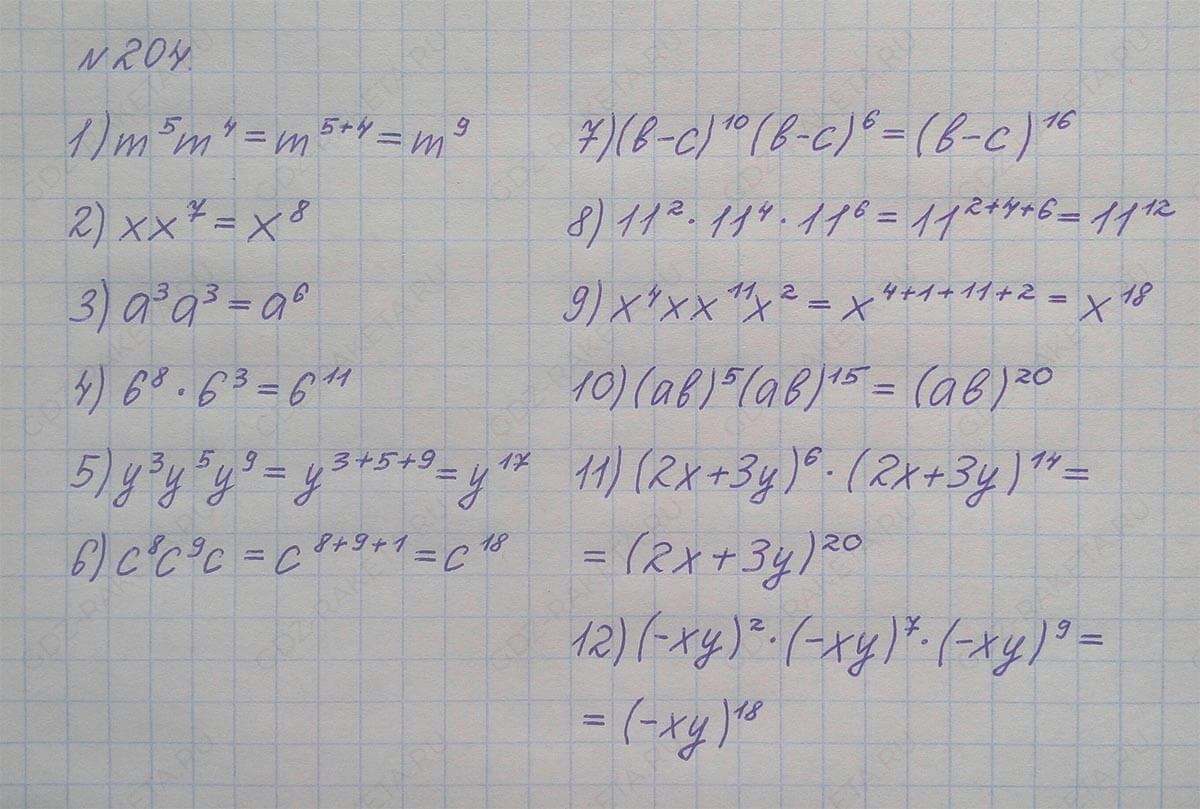 №204.
1) m⁵m⁴ = m⁵⁺⁴ = m⁹
2) xx⁷ = x⁸
3) a³a³ = a⁶
4) 6⁸ · 6³ = 6¹¹
5) y³y⁵y⁹ = y³⁺⁵⁺⁹ = y¹⁷
6) c⁸c⁹c = c⁸⁺⁹⁺¹ = c¹⁸
7) (b-c)¹⁰(b-c)⁶ = (b-c)¹⁶
8) 11² · 11⁴ · 11⁶ = 11²⁺⁴⁺⁶ = 11¹²
9) x⁴xx¹¹x² = x⁴⁺¹⁺¹¹⁺² = x¹⁸
10) (ab)⁵(ab)¹⁵ = (ab)²⁰
11) (2x+3y)⁶ · (2x+3y)¹⁴ =
= (2x+3y)²⁰
12) (-xy)² · (-xy)⁷ · (-xy)⁹ =
= (-xy)¹⁸
GDZ-RAKETA.RU